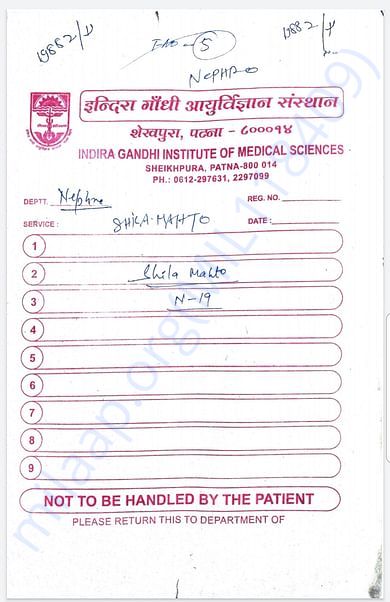 19882/
19882/
5
NEPHRO
इन्दिरा गाँधी आयुर्विज्ञान संस्थान
शेखपुरा, पटना - ८०००१४
INDIRA GANDHI INSTITUTE OF MEDICAL SCIENCES
SHEIKHPURA, PATNA-800 014
PH.: 0612-297631, 2297099
DEPTT. Nephro REG. NO.
SERVICE : SHILA MAHTO DATE :
1
2 Shila Mahto
3 N-19
4
5
6
7
8
9
NOT TO BE HANDLED BY THE PATIENT
PLEASE RETURN THIS TO DEPARTMENT OF
milaap.org(MIL118409)